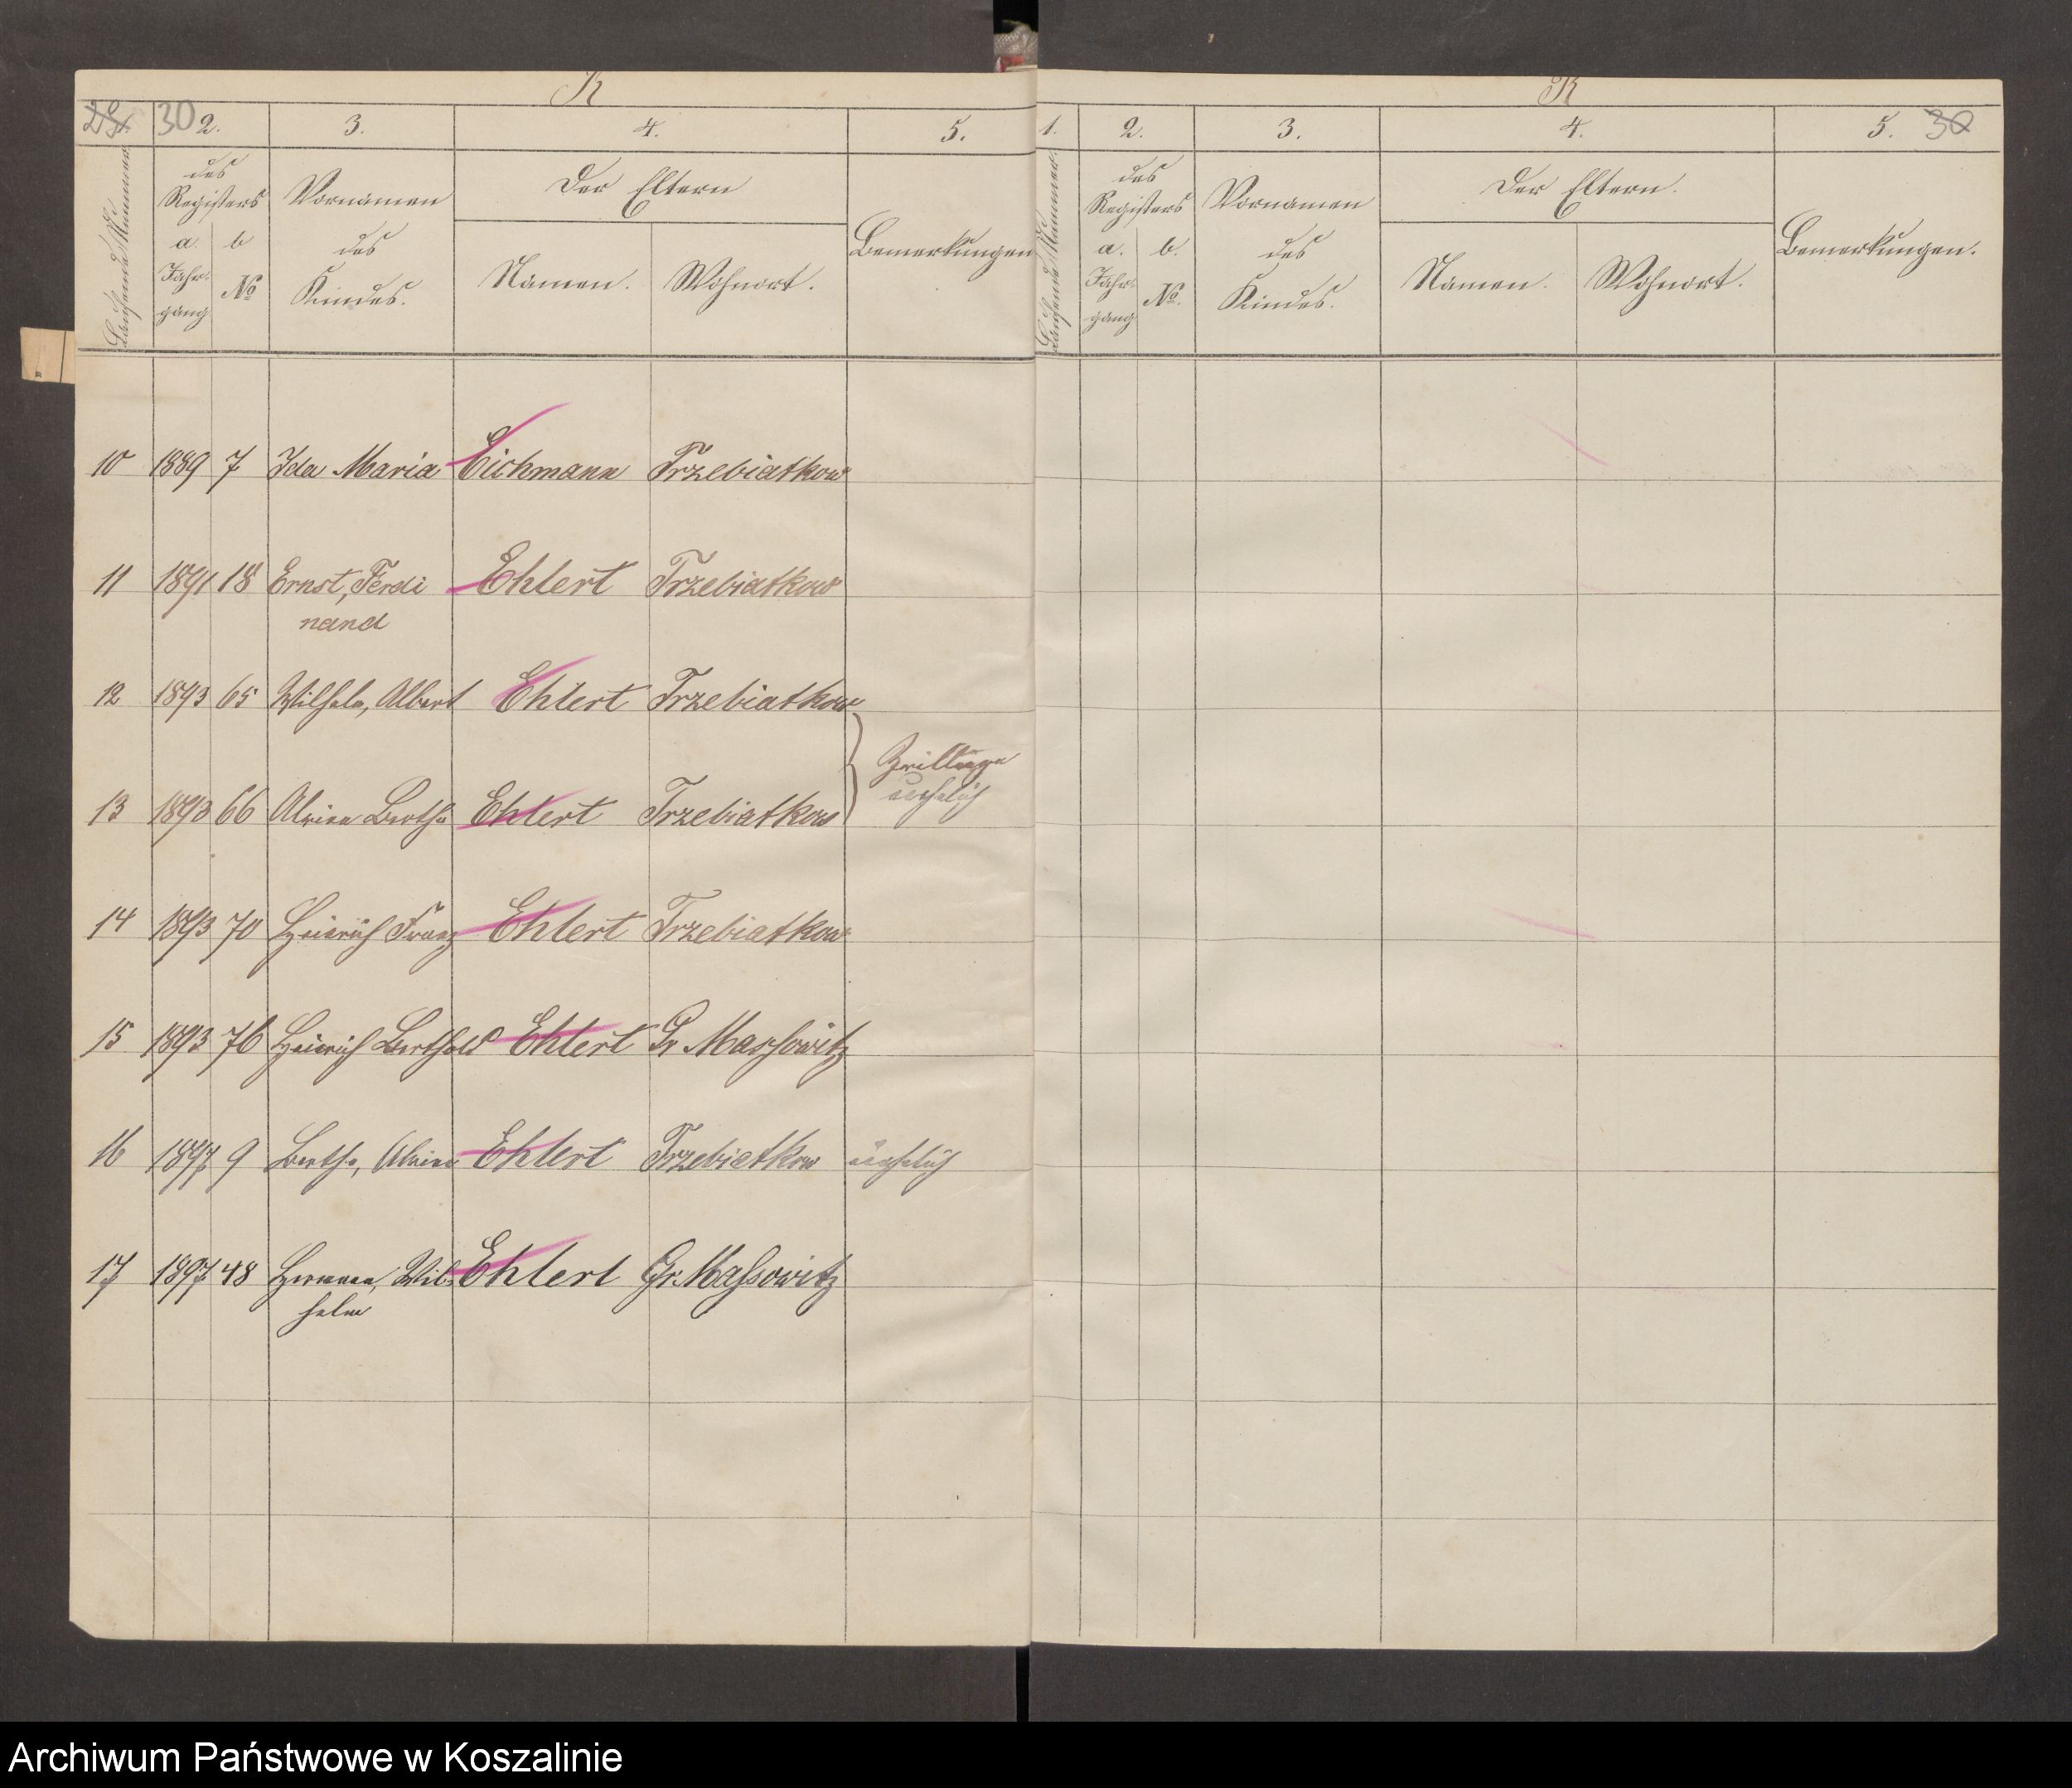 R
30 2. 3. 4. 5.
Laufende Nummer
des
Registers
a. b
Jahr-
gang
No
Vornamen
des
Kindes.
Der Eltern
Namen. Wohnort.
Bemerkungen
10 1889 7 Ida Maria Eichmann Trzebiatkow
11 1891 18 Ernst, Ferdi Ehlert Trzebiatkow
nand
12 1893 65 Wilhelm, Albert Ehlert Trzebiatkow
Zwillinge
unehelich
13 1893 66 Alwine Bertha Ehlert Trzebiatkow
14 1893 70 Heinrich Franz Ehlert Trzebiatkow
15 1893 76 Heinrich Berthold Ehlert Gr Massowitz
16 1897 9 Bertha, Alwine Ehlert Trzebiatkow unehelich
17 1897 48 Hermann, Wil- Ehlert Gr. Massowitz
helm
R
1. 2. 3. 4. 5. 30
Laufende Nummer.
des
Registers
a. b.
Jahr-
gang
No.
Vornamen
des
Kindes.
Der Eltern.
Namen. Wohnort.
Bemerkungen.
Archiwum Państwowe w Koszalinie